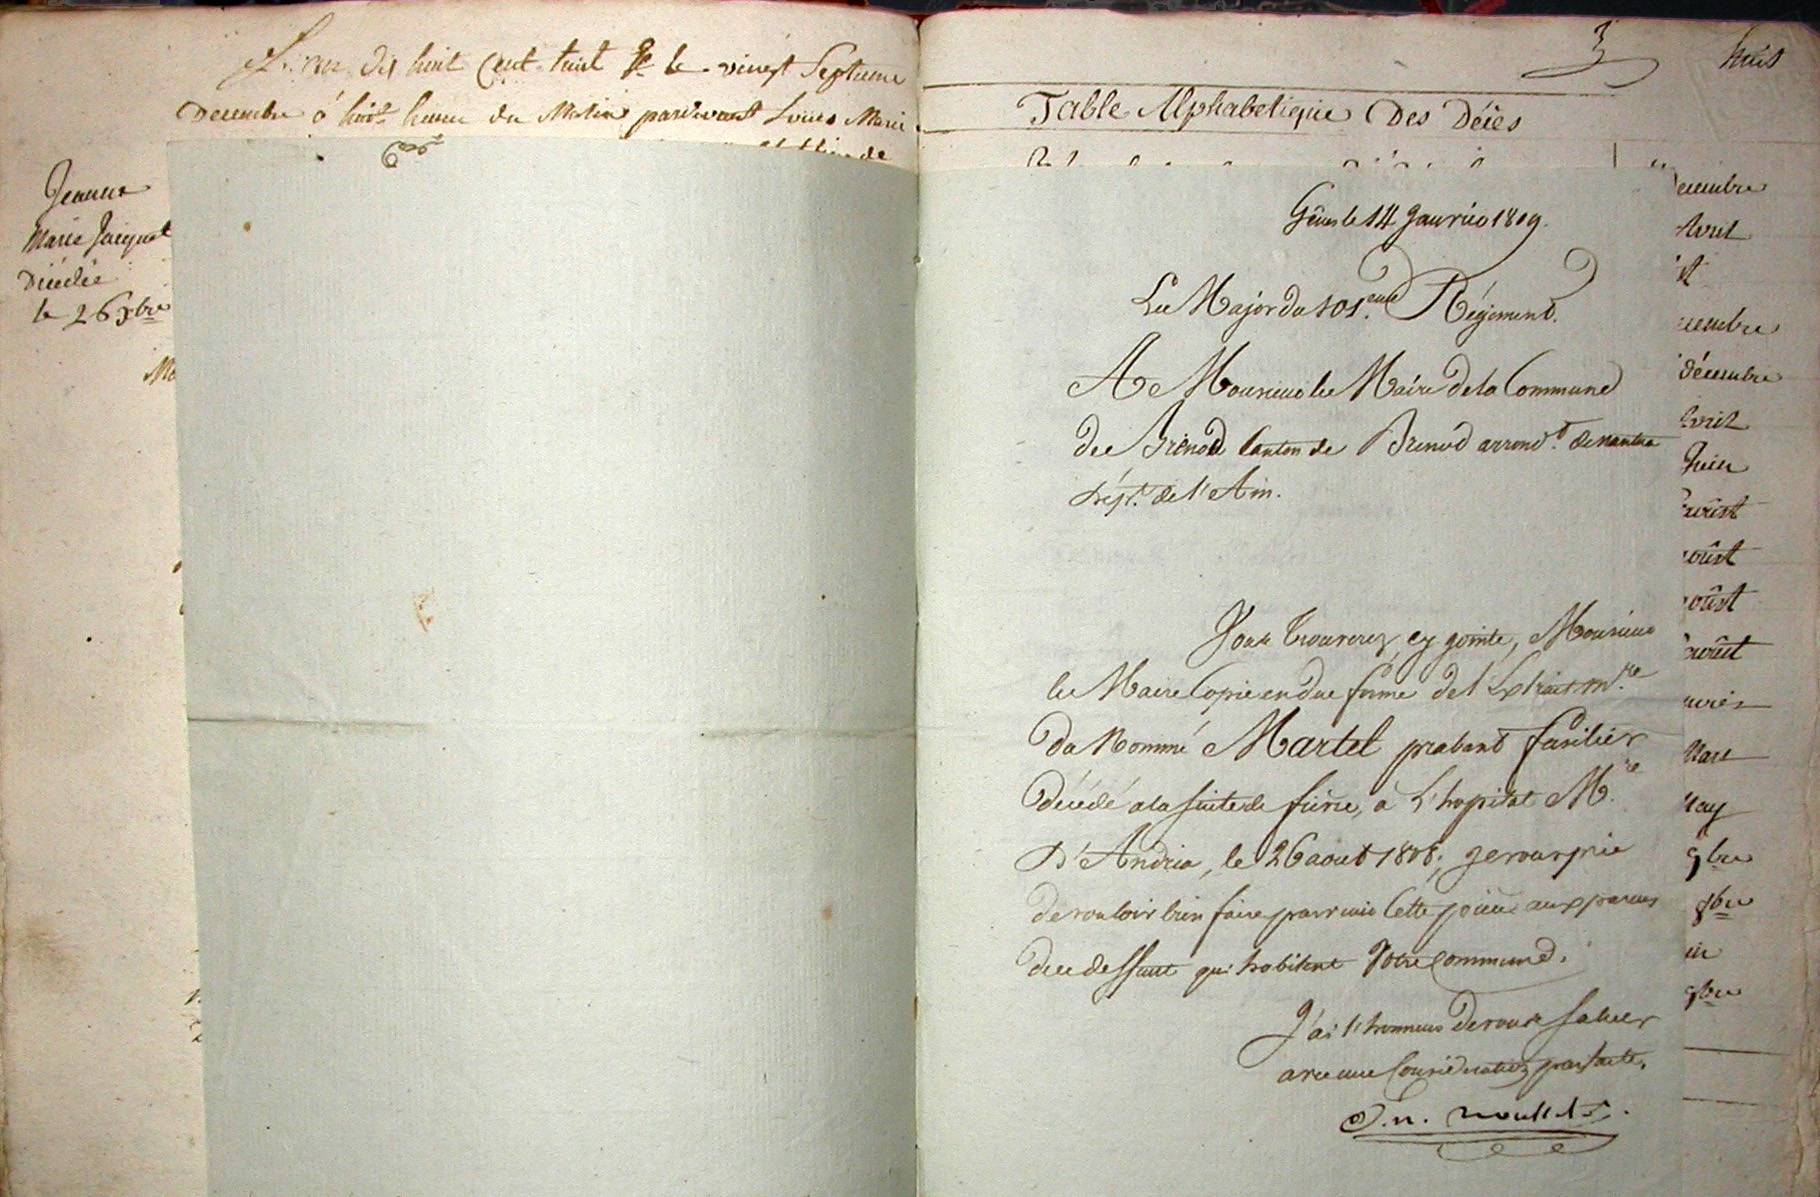 L'an dix huit Cent huit & le vingt Septieme
Decembre à huit heures du Matin pardevant Louis Marie
Jeanne
Marie Jacquet
Décédée
le 26 Xbre
3
huit
Table Alphabetique Des Décès
Gênes le 14 Janvier 1809.
Le Major du 101.eme Régiment.
A Monsieur le Maire de la Commune
de Brenod Canton de Brenod arrond.t de nantua
Dép.t de l'Ain.
Vous trouverez cy jointe, Monsieur
le Maire Copie en due forme de l'Extrait m.re
du Nommé Martel probant fusilier
décédé a la suite de fièvre, à L'hopital M.re
D'Andria, le 26 aout 1808. je vous prie
de vouloir bien faire parvenir Cette pièce aux parens
du deffunt qui habitent Votre Commune.
J'ai l'honneur de vous saluer
avec une Considération parfaite.
embre
Avril
embre
décembre
Avril
Juin
Aoûst
aoûst
aoûst
aoûst
Mars
May
9bre
8bre
9bre